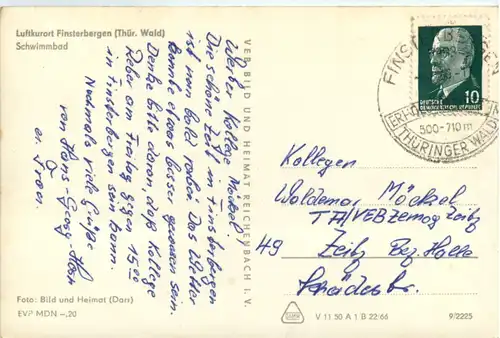 Luftkurort Finsterbergen (Thür. Wald)
Schwimmbad
Lieber Kollege Möckel!
Die schöne Zeit in Finsterbergen
ist nun bald vorbei. Das Wetter
könnte etwas besser gewesen sein.
Denke bitte daran, daß Kollege
Reber am Freitag gegen 15 00
in Finsterbergen sein kann.
Nochmals viele Grüße
von Hans-Georg
u. Frau.
Foto: Bild und Heimat (Dors)
EVP MDN –,20
VEB BILD UND HEIMAT REICHENBACH I. V.
10
DEUTSCHE
DEMOKRATISCHE REPUBLIK
500-710m
THÜRINGER WALD
Kollegen
Waldemar Möckel
TA/VEB Zemag Zeitz
49 Zeitz Bez. Halle
V 11 50 A 1/B 22/66
9/2225